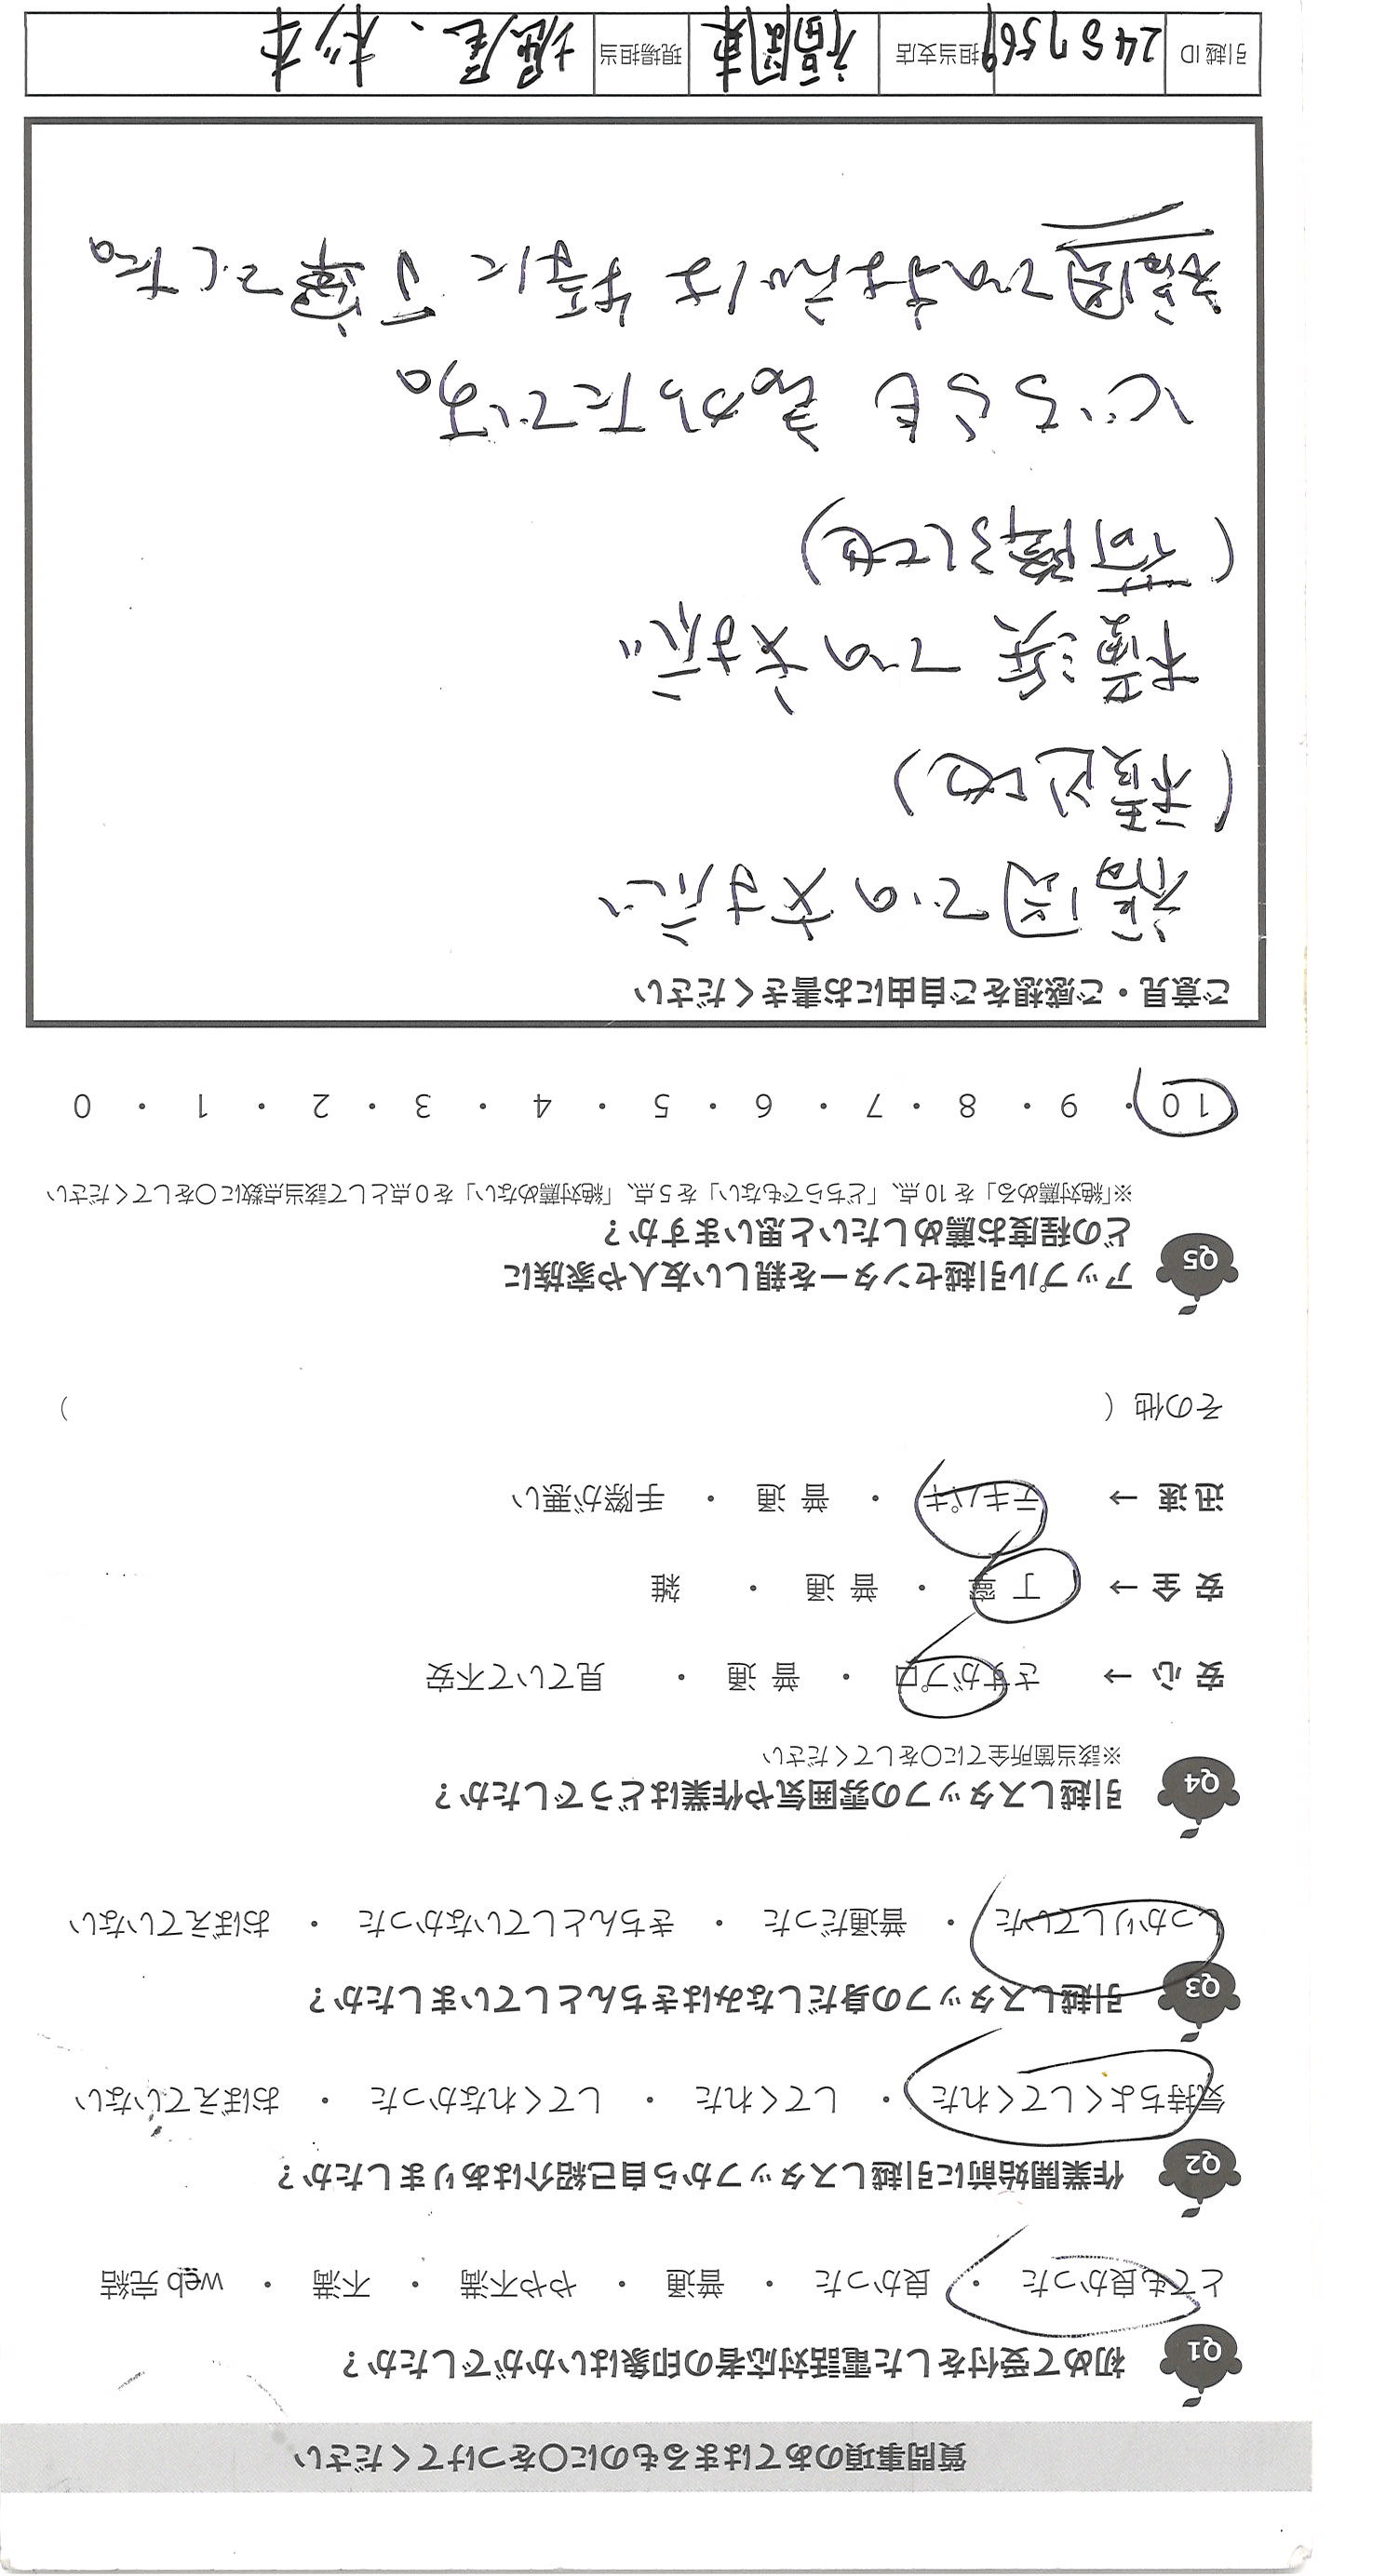 質問事項のあてはまるものに○をつけてください
Q1 初めて受付をした電話対応者の印象はいかがでしたか？
とても良かった ・ 良かった ・ 普通 ・ やや不満 ・ 不満 ・ web 完結
Q2 作業開始前に引越しスタッフから自己紹介はありましたか？
気持ちよくしてくれた ・ してくれた ・ してくれなかった ・ おぼえていない
Q3 引越しスタッフの身だしなみはきちんとしていましたか？
しっかりしていた ・ 普通だった ・ きちんとしていなかった ・ おぼえていない
Q4 引越しスタッフの雰囲気や作業はどうでしたか？
※該当箇所全てに○をしてください
安 心 → さすがプロ ・ 普 通 ・ 見ていて不安
安 全 → 丁 寧 ・ 普 通 ・ 雑
迅 速 → テキパキ ・ 普 通 ・ 手際が悪い
その他（ ）
Q5 アップル引越センターを親しい友人や家族に
どの程度お薦めしたいと思いますか？
※「絶対薦める」を 10 点、「どちらでもない」を 5 点、「絶対薦めない」を 0 点として該当点数に○をしてください
10 ・ 9 ・ 8 ・ 7 ・ 6 ・ 5 ・ 4 ・ 3 ・ 2 ・ 1 ・ 0
ご意見・ご感想をご自由にお書きください
福岡での対応
（積込地）
横浜での対応
（荷降ろし地）
どちらも良かったです。
福岡での対応は特に丁寧でした。
引越 ID 2487569 担当支店 福岡東 現場担当 堀尾、杉本